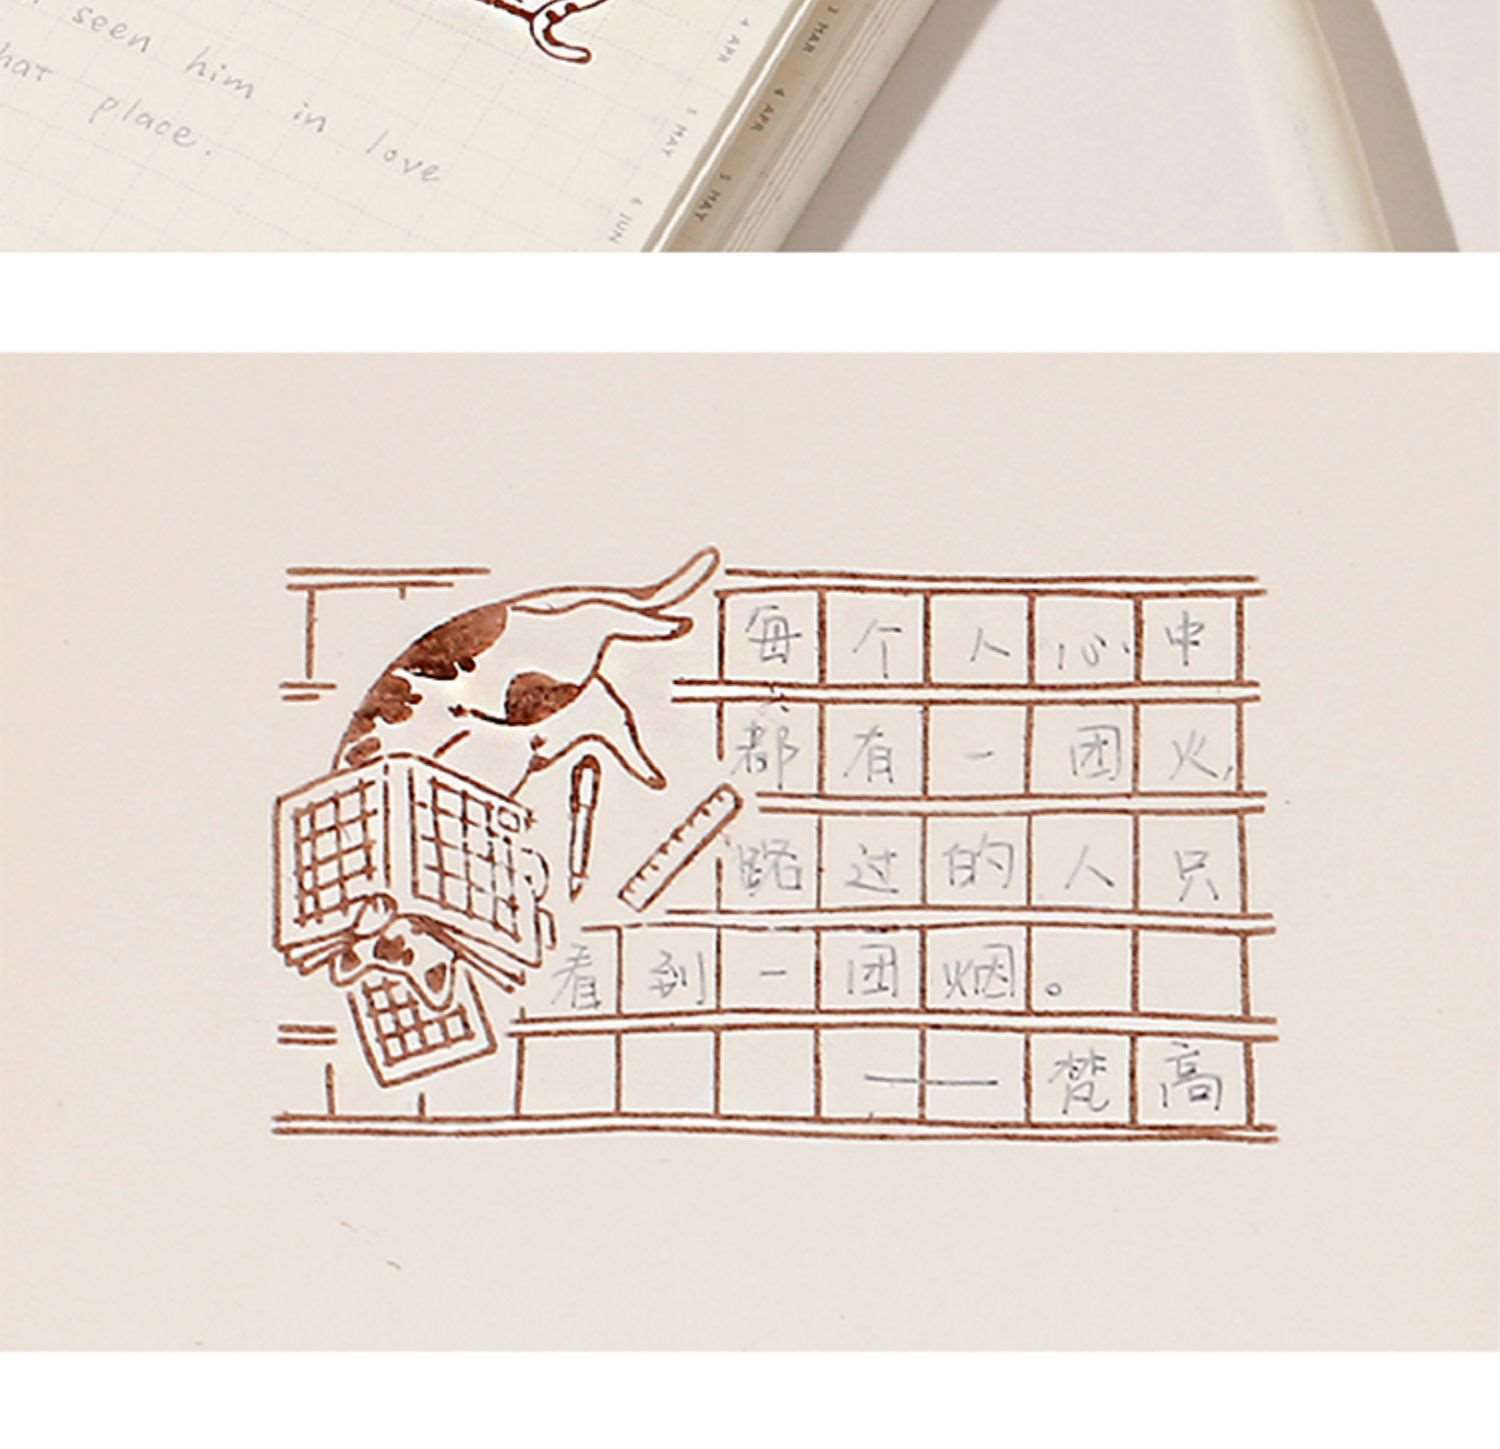 seen him in love
place.
3 MAR
4 APR
4 APR
5 MAY
5 MAY
6 JUN
每个人心中
都有一团火,
路过的人只
看到一团烟。
——梵高